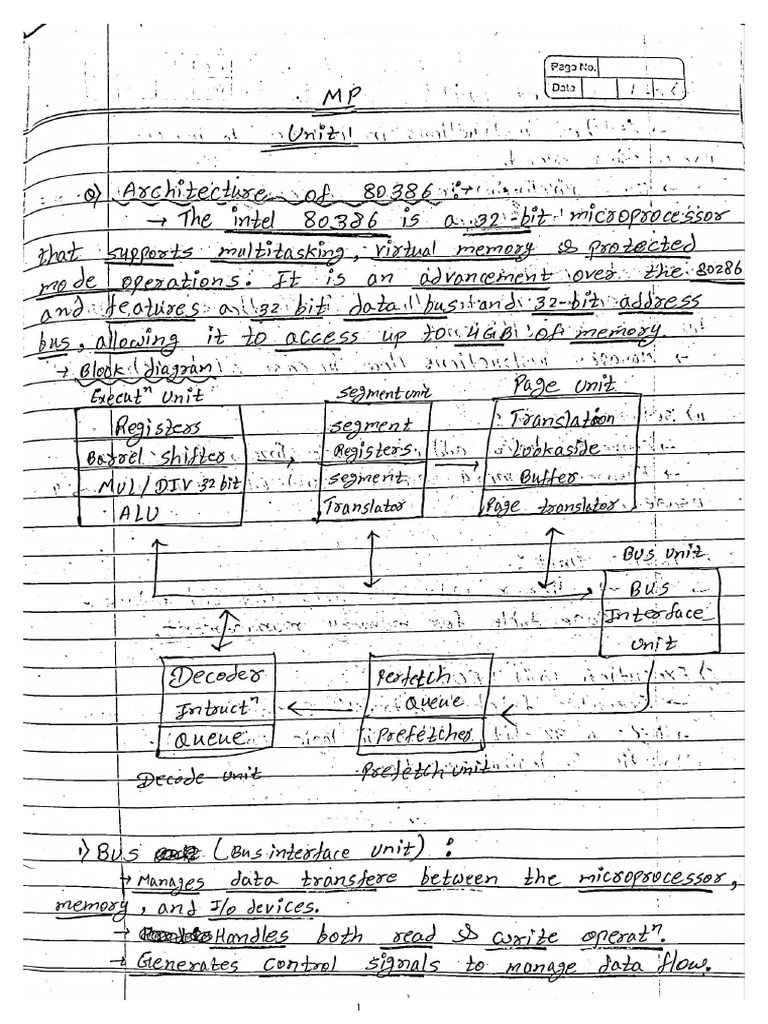 Page No.
Date
MP
Unit 1
Q) Architecture of 80386 :-
→ The intel 80386 is a 32-bit microprocessor
that supports multitasking, virtual memory & protected
mode operations. It is an advancement over the 80286
and features a 32 bit data bus and 32-bit address
bus, allowing it to access up to 4GB of memory.
→ Block diagram
Executⁿ Unit
Registers
Barrel Shifter
MUL/DIV 32 bit
ALU
segment unit
segment
Registers
segment
Translator
Page unit
Translation
Lookaside
Buffer
Page translator
Bus unit
Bus
Interface
unit
Decoder
Intructⁿ
Queue
Decode unit
Perfetch
Queue
Prefetcher
Prefetch unit
1) Bus (Bus interface unit) :
→ Manages data transfere between the microprocessor,
memory, and I/o devices.
→ Handles both read & write operatⁿ.
→ Generates control signals to manage data flow.
1